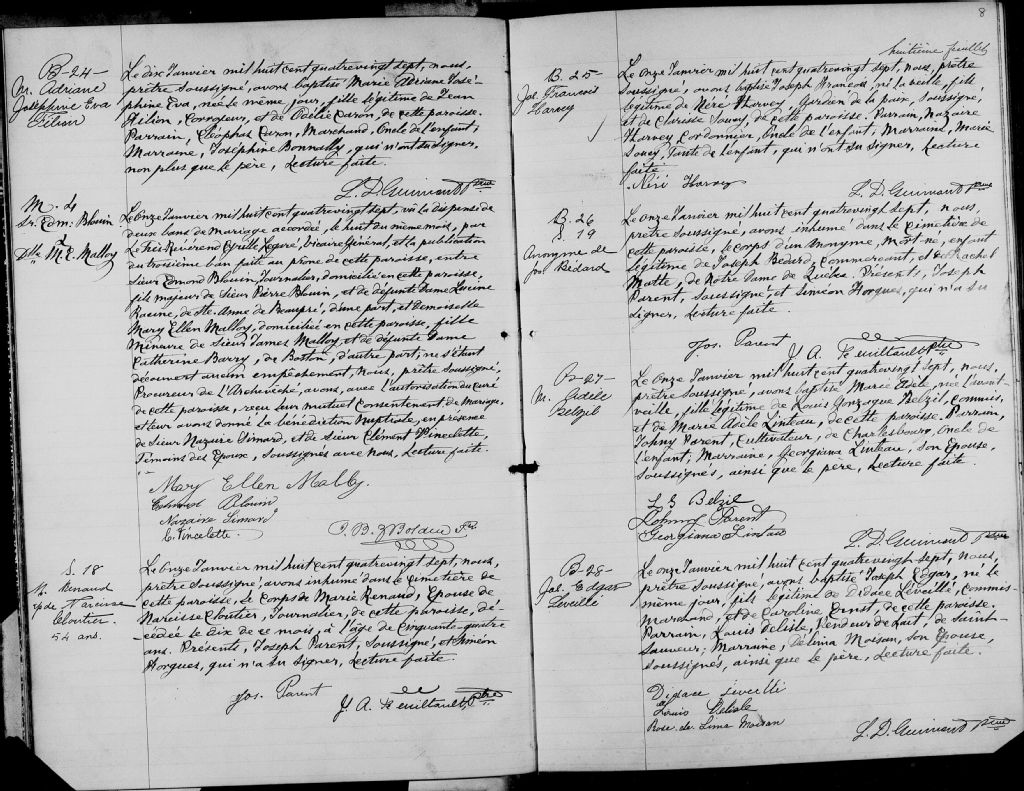 B-24-
M. Adriane
Joséphine Eva
Filion
Le dix Janvier mil huit cent quatrevingt sept, nous,
prêtre soussigné, avons baptisé Marie Adriane José-
phine Eva, née le même jour, fille légitime de Jean
Filion, Corroyeur, et de Odélie Caron, de cette paroisse.
Parrain, Cléophas Caron, Marchand, Oncle de l'enfant;
Marraine, Joséphine Bonnally, qui n'ont su signer,
non plus que le père, Lecture faite.
L. D. Guimont Ptre
M. 4
Sr. Edm: Blouin
&
Dlle M. E. Malloy
Le onze Janvier mil huit cent quatrevingt sept, vu la dispense de
deux bans de mariage accordée, le huit du même mois, par
Le Très Révérend Cyrille Légaré, Vicaire Général, et la publication
du troisième ban faite au prône de cette paroisse, entre
Sieur Edmond Blouin, Journalier, domicilié en cette paroisse,
fils majeur de Sieur Pierre Blouin, et de défunte Dame Lucine
Racine, de Ste. Anne de Beaupré, d'une part, et Demoiselle
Mary Ellen Malloy, domiciliée en cette paroisse, fille
Mineure de Sieur James Malloy, et de défunte Dame
Catherine Barry, de Boston, d'autre part; ne s'étant
découvert aucun empêchement, Nous, prêtre soussigné,
Procureur de l'Archevêché, avons, avec l'autorisation du curé
de cette paroisse, reçu leur mutuel Consentement de Mariage,
et leur avons donné la bénédiction Nuptiale, en présence
de Sieur Nazaire Simard, et de Sieur Clément Vincelette,
Témoins des Epoux, Soussignés avec nous, Lecture faite.
Mary Ellen Malloy.
Edmond Blouin
Nazaire Simard
C. Vincelette.
S. 18
M. Renaud
Epse de Narcisse
Cloutier
54 ans.
Le onze Janvier mil huit cent quatrevingt sept, nous,
prêtre soussigné, avons inhumé dans le cimetière de
cette paroisse, le corps de Marie Renaud, Epouse de
Narcisse Cloutier, Journalier, de cette paroisse, dé-
cédée le dix de ce mois, à l'âge de Cinquante-quatre
ans. Présents, Joseph Parent, Soussigné, et Siméon
Horgues, qui n'a su signer, Lecture faite.
Jos. Parent
J. A. Feuiltault, Ptre
8
huitième feuillet
B. 25-
Jos. François
Harvey
Le onze Janvier mil huit cent quatrevingt sept, nous, prêtre
soussigné, avons baptisé Joseph François, né la veille, fils
légitime de Néré Harvey, Gardien de la paix, soussigné,
et de Clarisse Soucy, de cette paroisse. Parrain, Nazaire
Harvey, Cordonnier, Oncle de l'enfant; Marraine, Marie
Soucy, Tante de l'enfant, qui n'ont su signer, Lecture
faite.
Néré Harvey
L. D. Guimont Ptre
B. 26
S. 19
Anonyme de
Jos. Bédard
Le onze Janvier mil huit cent quatrevingt sept, nous,
prêtre soussigné, avons inhumé dans le cimetière de
cette paroisse, le corps d'un Anonyme, Mort-né, enfant
légitime de Joseph Bédard, Commerçant, et de Rachel
Matte, de Notre Dame de Québec. Présents, Joseph
Parent, soussigné, et Siméon Horgues, qui n'a su
signer, Lecture faite.
Jos. Parent
J. A. Feuiltault, Ptre
B-27-
M. Adèle
Belzil
Le onze Janvier mil huit cent quatrevingt sept, nous,
prêtre soussigné, avons baptisé Marie Adèle, née l'avant-
veille, fille légitime de Louis Gonzague Belzil, Commis,
et de Marie Adèle Linteau, de cette paroisse. Parrain,
Johny Parent, Cultivateur, de Charlesbourg, Oncle de
l'enfant; Marraine, Georgiana Linteau, son Epouse,
Soussignés, ainsi que le père, Lecture faite.
L G Belzil
Johnny Parent
Georgiana Linteau
L. D. Guimont Ptre
B-28-
Jos. Edgar
Léveillé
Le onze Janvier mil huit cent quatrevingt sept, nous,
prêtre soussigné, avons baptisé Joseph Edgar, né le
même jour, fils légitime de Didace Léveillé, Commis-
marchand, et de Caroline Ernst, de cette paroisse.
Parrain, Louis Delisle, Vendeur de Lait, de Saint-
Sauveur; Marraine, Délima Moisan, son Epouse,
soussignés, ainsi que le père, Lecture faite.
Didace Léveillé
Louis Delisle
Rose de Lima Moisan
L. D. Guimont Ptre